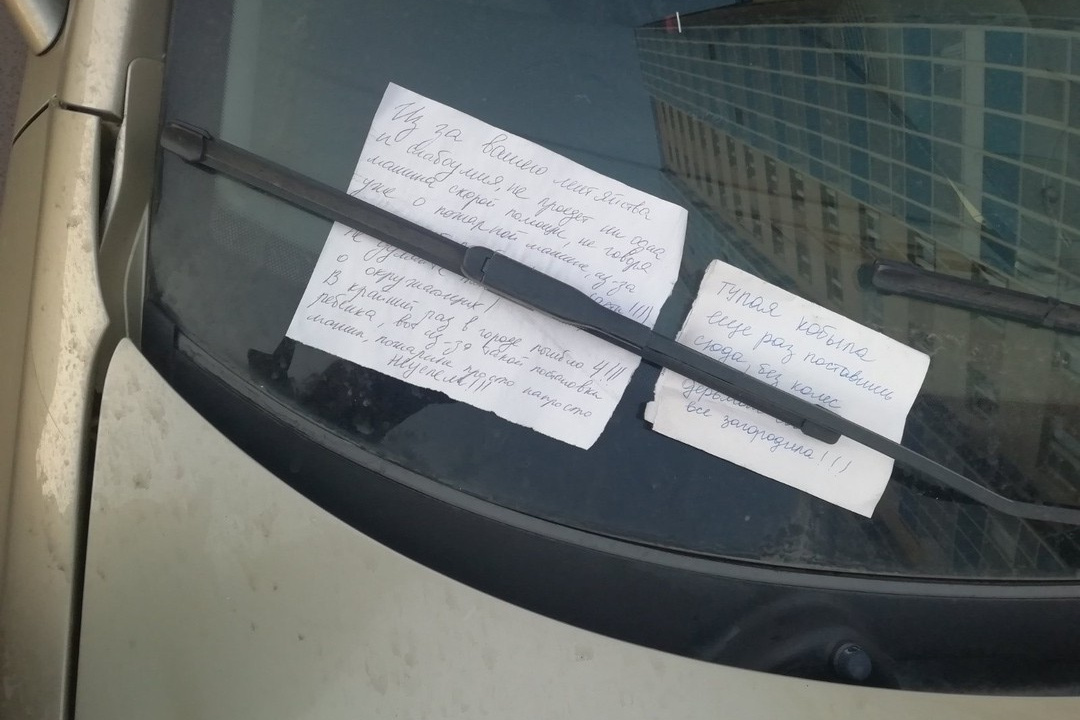 Из за вашего лентяйства
и слабоумия, не проедет ни одна
машина скорой помощи, не говоря
уже о пожарной машине, из-за
не
о окружающих!
В крайний раз в городе погибло 4!!!
ребёнка, вот из-за такой постановки
машин, пожарные просто напросто
неуспели!!!
Тупая кобыла
еще раз поставишь
сюда, без колес
все загородила!!!